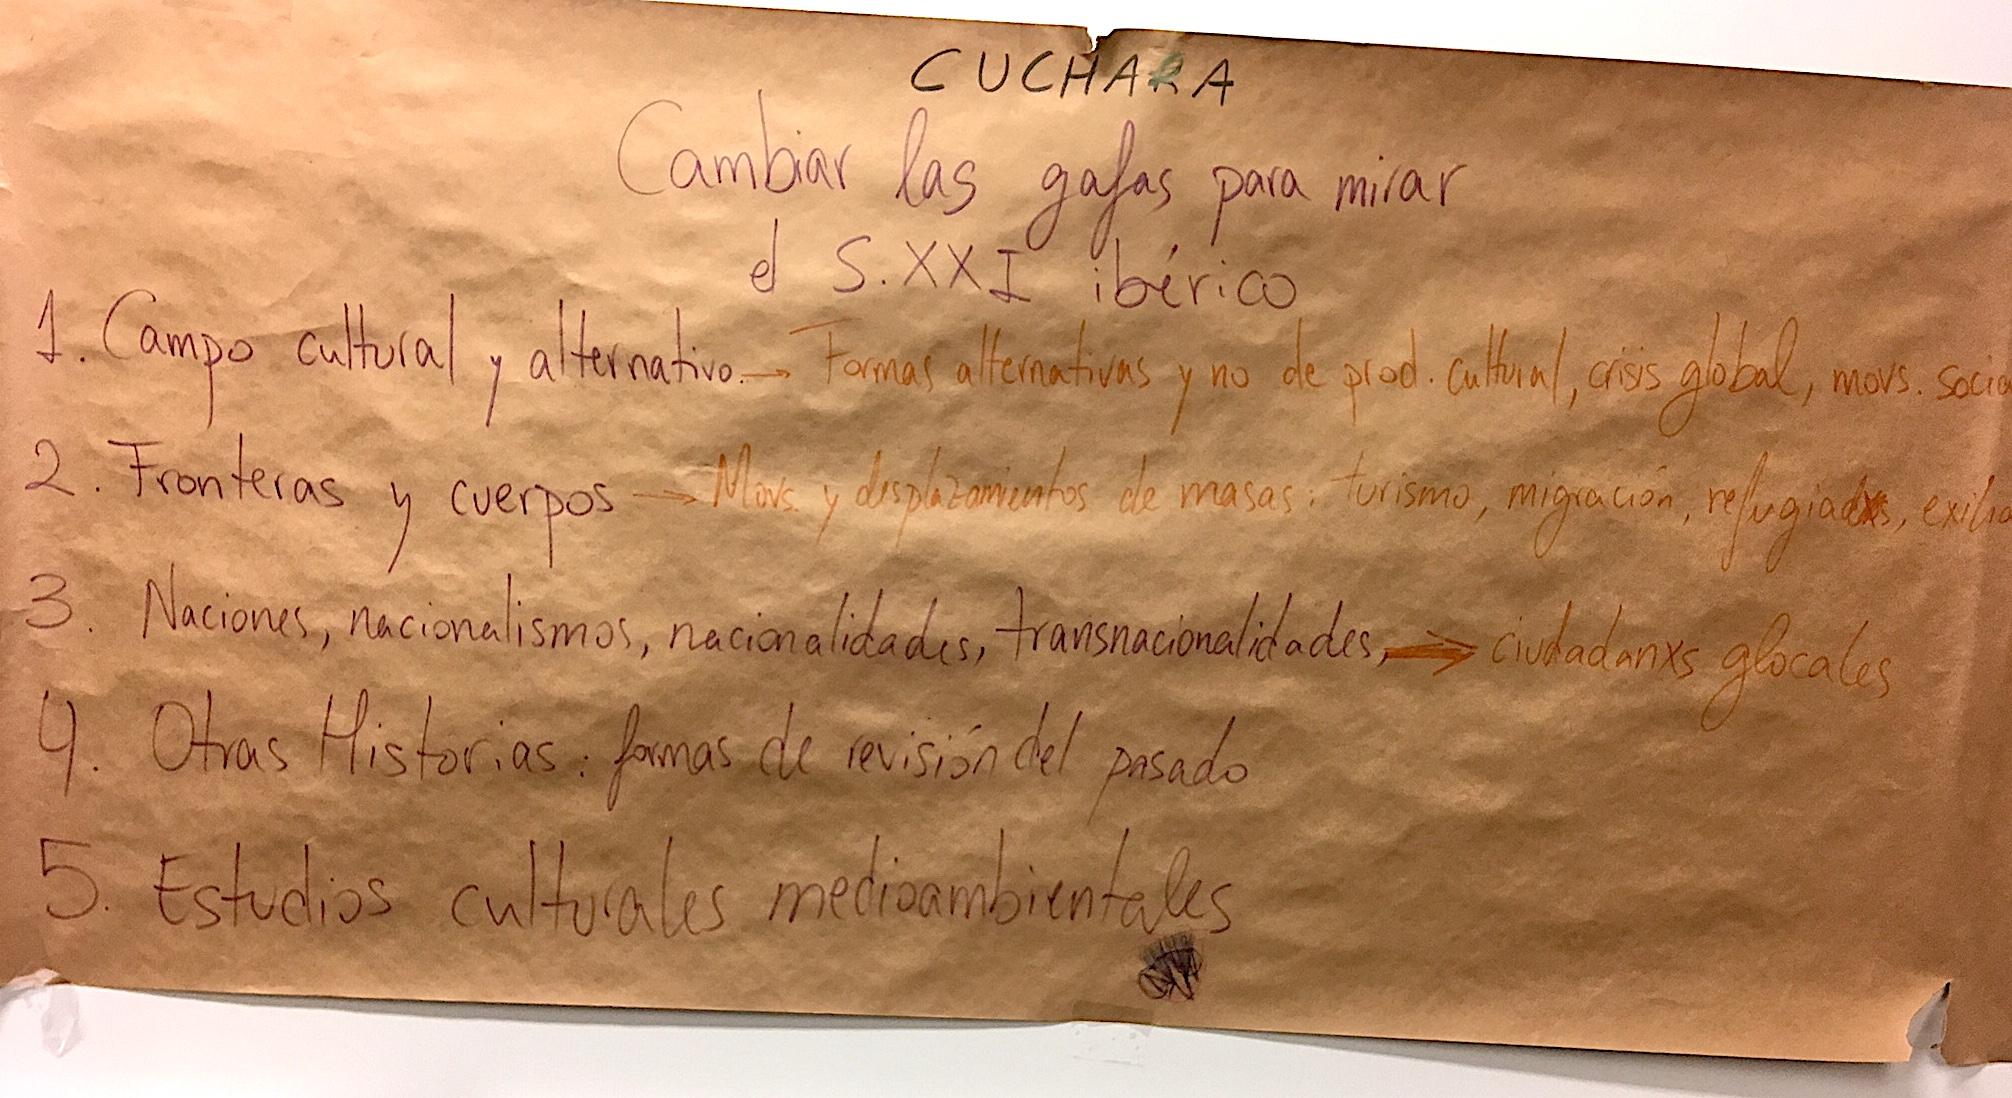 CUCHARA
Cambiar las gafas para mirar
el S.XXI ibérico
1. Campo cultural y alternativo. → Formas alternativas y no de prod. cultural, crisis global, movs. socia
2. Fronteras y cuerpos → Movs. y desplazamientos de masas: turismo, migración, refugiadxs, exilio
3. Naciones, nacionalismos, nacionalidades, transnacionalidades, → ciudadanxs glocales
4. Otras Historias: formas de revisión del pasado
5. Estudios culturales medioambientales